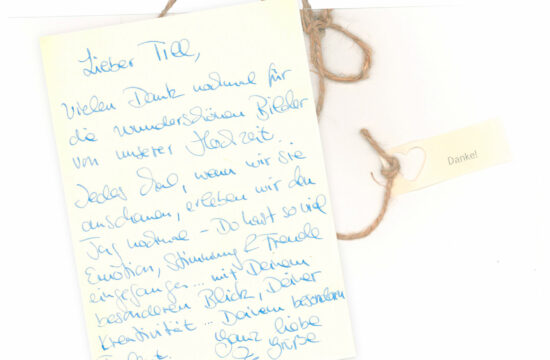 Lieber Till,
Vielen Dank nochmal für
die wunderschönen Bilder
von unserer Hochzeit
Jedes Mal, wenn wir sie
anschauen, erleben wir den
Tag nochmal - Du hast so viel
Emotion, Stimmung & Freude
eingefangen... mit Deinem
besonderen Blick, Deiner
Kreativität... Deinem besonderen
Ganz liebe
Grüße
Danke!